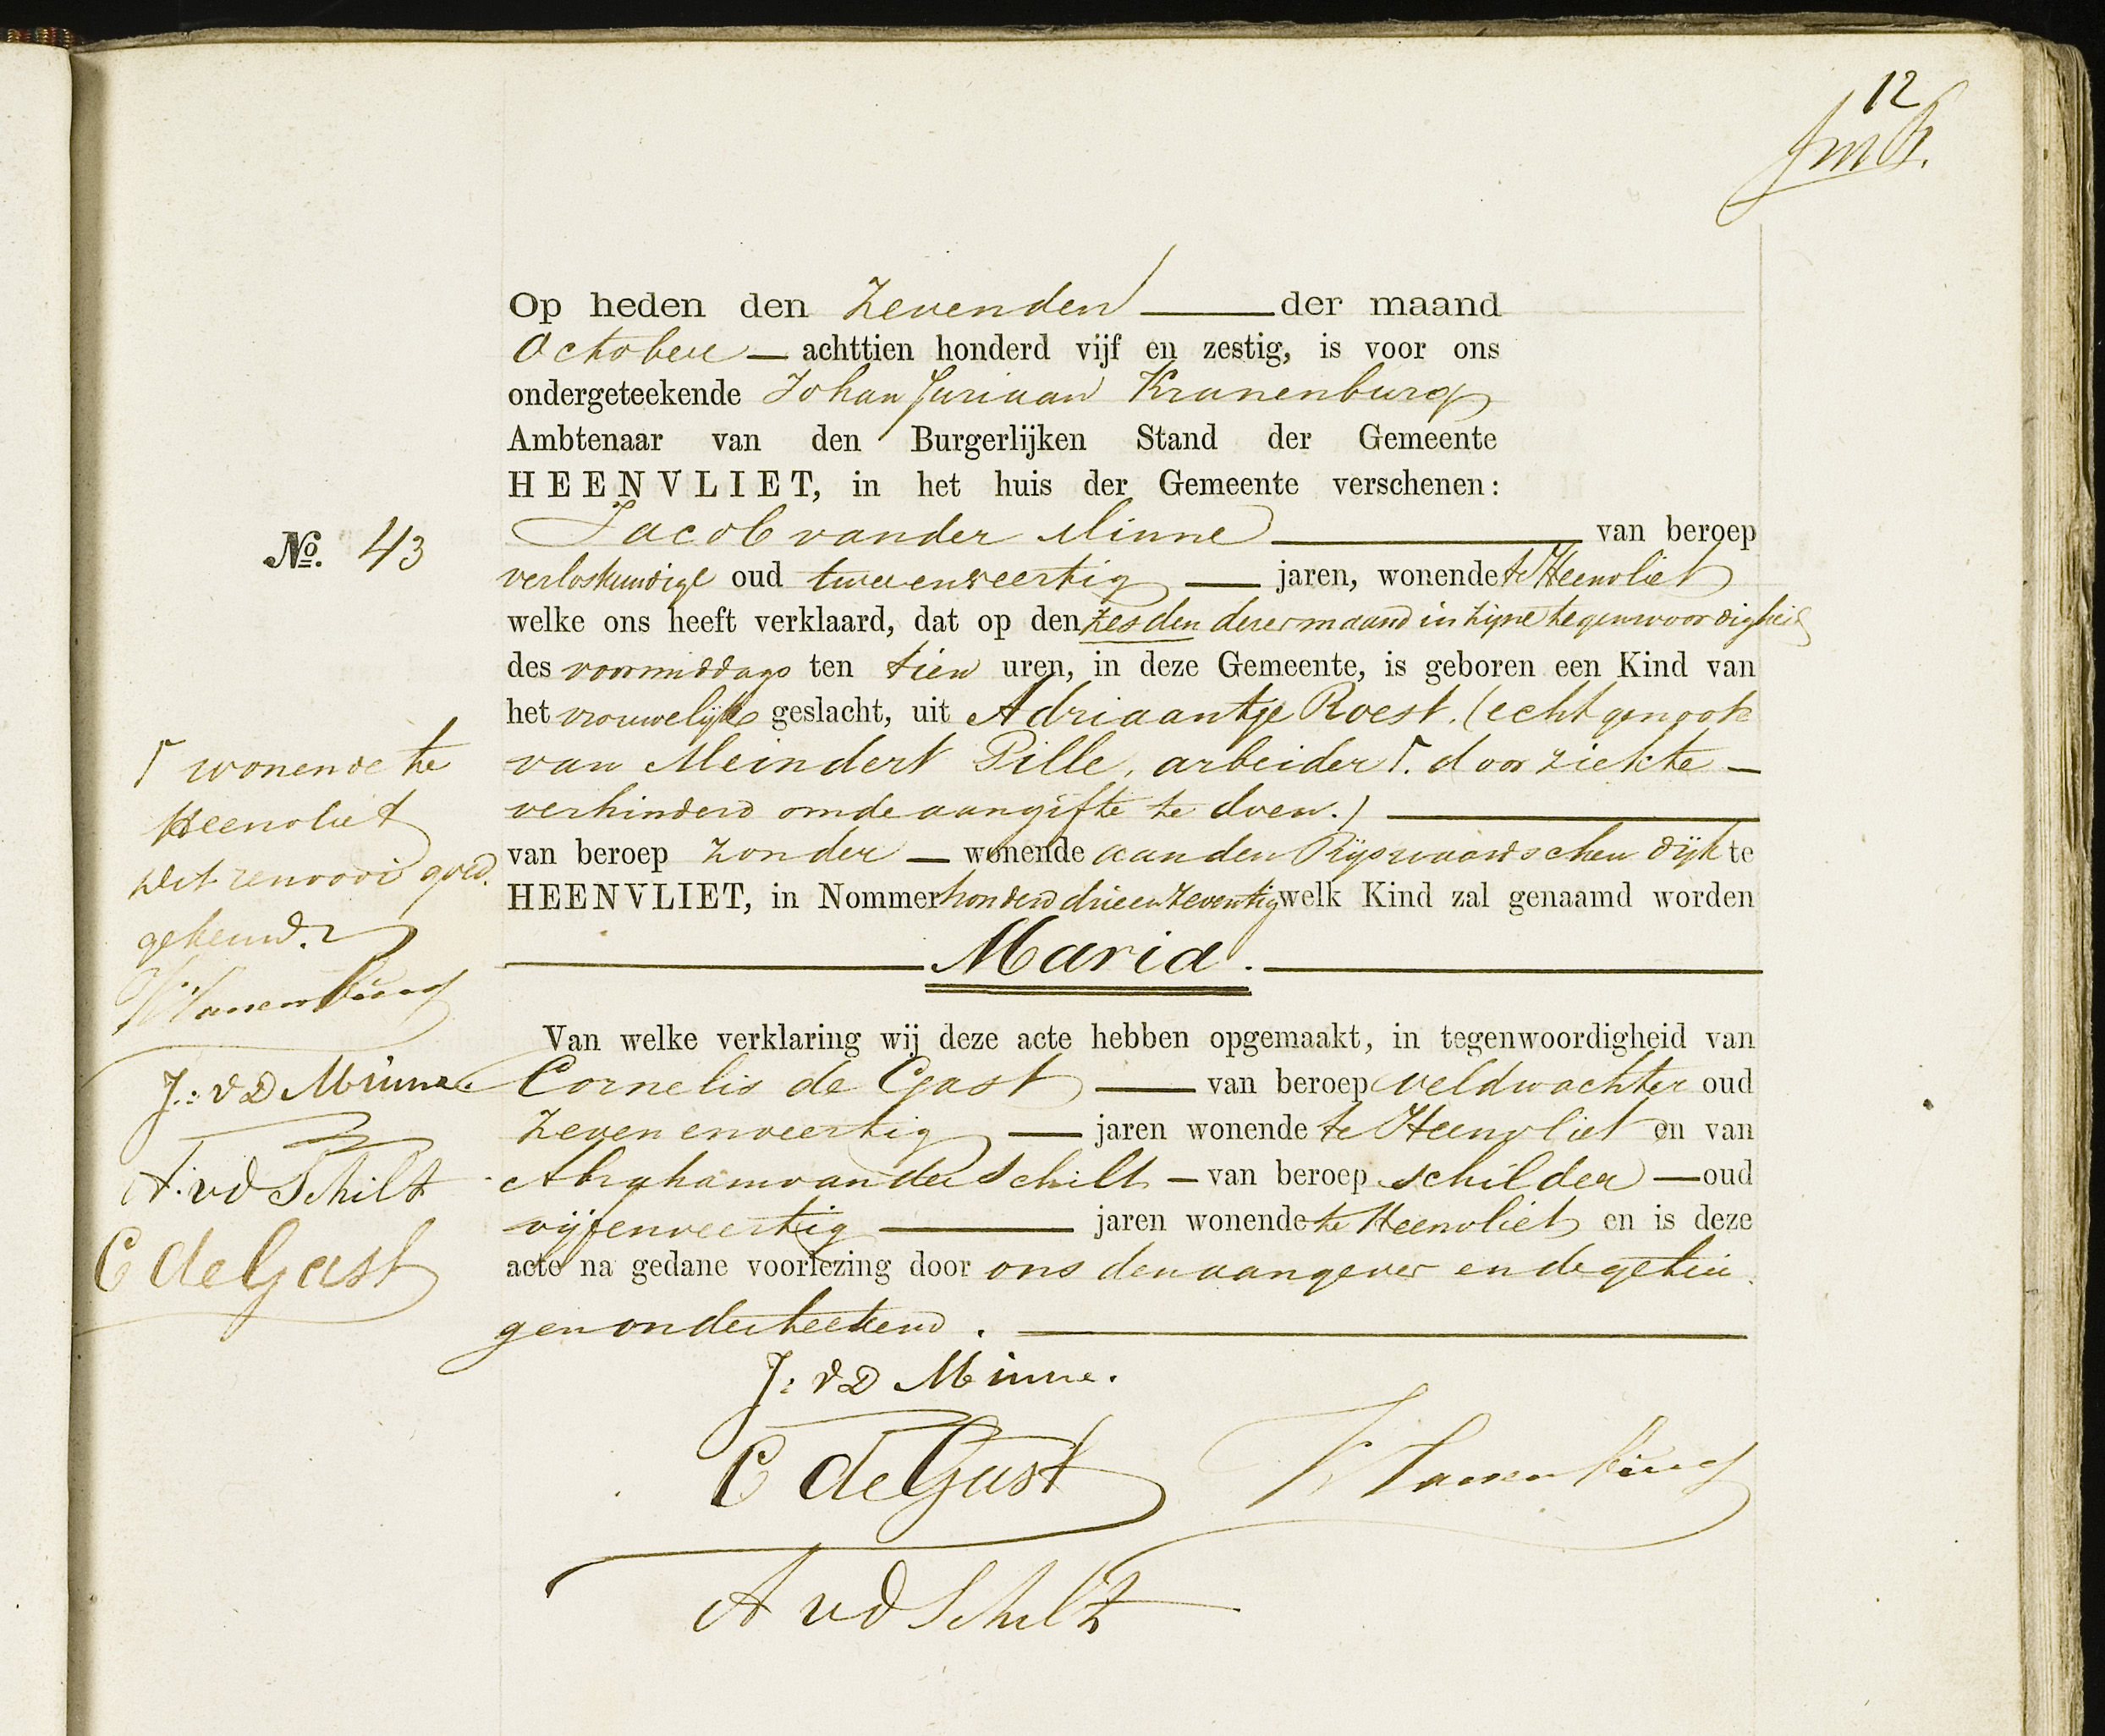 12
Op heden den Zevenden der maand
October achttien honderd vijf en zestig, is voor ons
ondergeteekende Johan Juriaan Kranenburg
Ambtenaar van den Burgerlijken Stand der Gemeente
HEENVLIET, in het huis der Gemeente verschenen:
No. 43
Jacob van der Minne van beroep
verloskundige oud tweeenveertig jaren, wonende te Heenvliet
welke ons heeft verklaard, dat op den zesden dezer maand in zijne tegenwoordigheid
des voormiddags ten tien uren, in deze Gemeente, is geboren een Kind van
het vrouwelijke geslacht, uit Adriaantje Roest. (echtgenoote
van Meindert Pille, arbeider Γ. door ziekte
verhinderd om de aangifte te doen.)
van beroep zonder wonende aan den Rijswaardschen dijk te
HEENVLIET, in Nommer honderd drieenzeventig welk Kind zal genaamd worden
Maria.
Van welke verklaring wij deze acte hebben opgemaakt, in tegenwoordigheid van
Cornelis de Gast van beroep veldwachter oud
zevenenveertig jaren wonende te Heenvliet en van
Abraham van der Schilt van beroep schilder oud
vijfenveertig jaren wonende te Heenvliet en is deze
acte na gedane voorlezing door ons den aangever en de getui
gen onderteekend.
J: vD Minne.
C de Gast
Kranenburg
A vd Schilt
Γ wonende te
Heenvliet
Dit renvooi goed
gekeurd.
Kranenburg
J: vD Minne.
A. vd Schilt
C de Gast